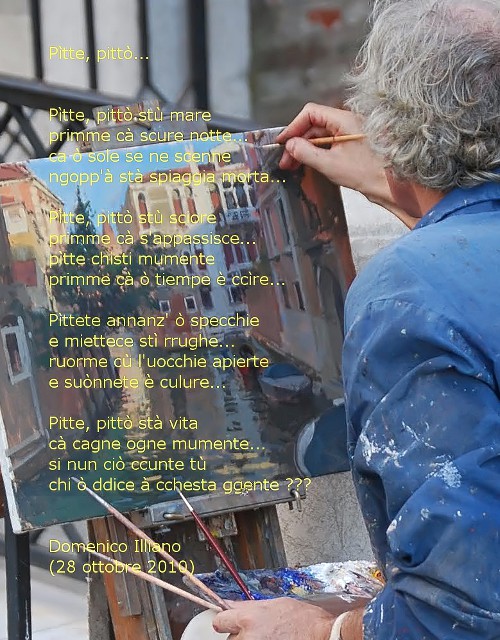 Pìtte, pittò...
Pìtte, pittò stù mare
primme cà scure notte...
cà ò sole se ne scenne
ngopp'à stà spiaggia morta...
Pìtte, pittò stù sciore
primme cà s'appassisce...
pìtte chisti mumente
primme cà ò tiempe è ccìre...
Pìttete annanz' ò specchie
e miettece stì rrughe...
ruorme cù l'uocchie apierte
e suònnete è culure...
Pitte, pittò stà vita
cà cagne ogne mumente...
si nun ciò ccunte tù
chi ò ddice à cchesta ggente ???
Domenico Illiano
(28 ottobre 2010)